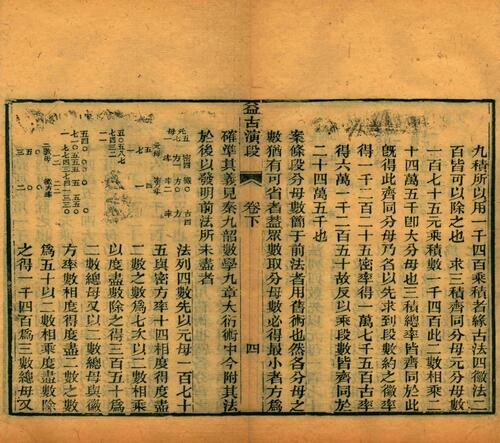 九積所以用一千四百乘積者緣古法四徽法二
百皆可以除之也　求三積齊同分母元分母數
一百七十五元乘積數一千四百此二數相乘二
十四萬五千即大分母也三積總率皆齊同於此
既得此齊同分母乃各以先求到段數約之徽率
得一千二百二十五密率得一萬七千五百古率
得六萬一千二百五十故反以乘段數皆齊同於
二十四萬五千
案條段分母數簡于前法者用舊術也然各分母
數猶有可省者葢眾數取分母數必得最小者方為
益古演段　卷下　四
確準其義見秦九韶數學九章大衍術中今附其法
於後以發明前法所未盡者
法列四數先以元母一百七十
五與密方率十四相度得度盡
二數之數為七次以二數相乘
以度盡數除之得三百五十為
二數總母又以二數總母與徽
方率數相度得度盡二數之數
為五十以二數相乘度盡數除
之得一千四百為三數總母又